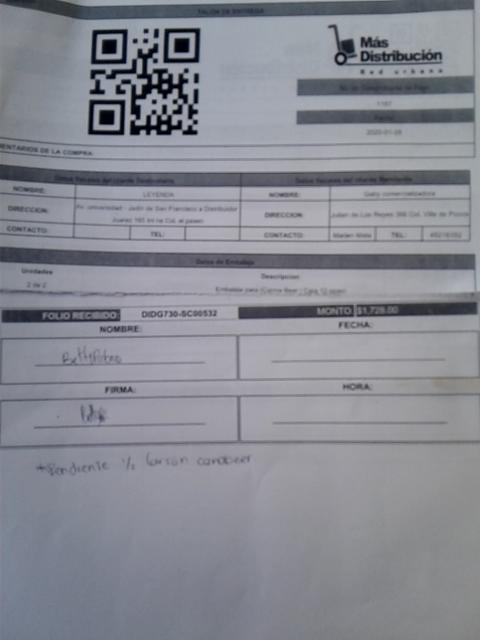 TALON DE ENTREGA
Más
Distribución
Red urbana
No. de Comprobante de Pago
1187
Fecha
2020-01-28
MENTARIOS DE LA COMPRA:
Datos fiscales del cliente Destinatario
Datos fiscales del cliente Remitente
NOMBRE:
LEYENDA
NOMBRE:
Gaby comercializadora
DIRECCION:
Av. universidad - Jadin de San Francisco a Distribuidor
Juarez 165 int na Col. el paseo
DIRECCION:
Julian de Los Reyes 366 Col. Villa de Pozos
CONTACTO:
TEL:
CONTACTO:
TEL:
Datos de Embalaje
Unidades
Descripcion
2 de 2
Embalaje para (Canna Beer) Caja 12
FOLIO RECIBIDO:
DIDG730-SC00532
MONTO:
$1,728.00
NOMBRE:
FECHA:
FIRMA:
HORA:
*Pendiente 1/2 carton canabeer